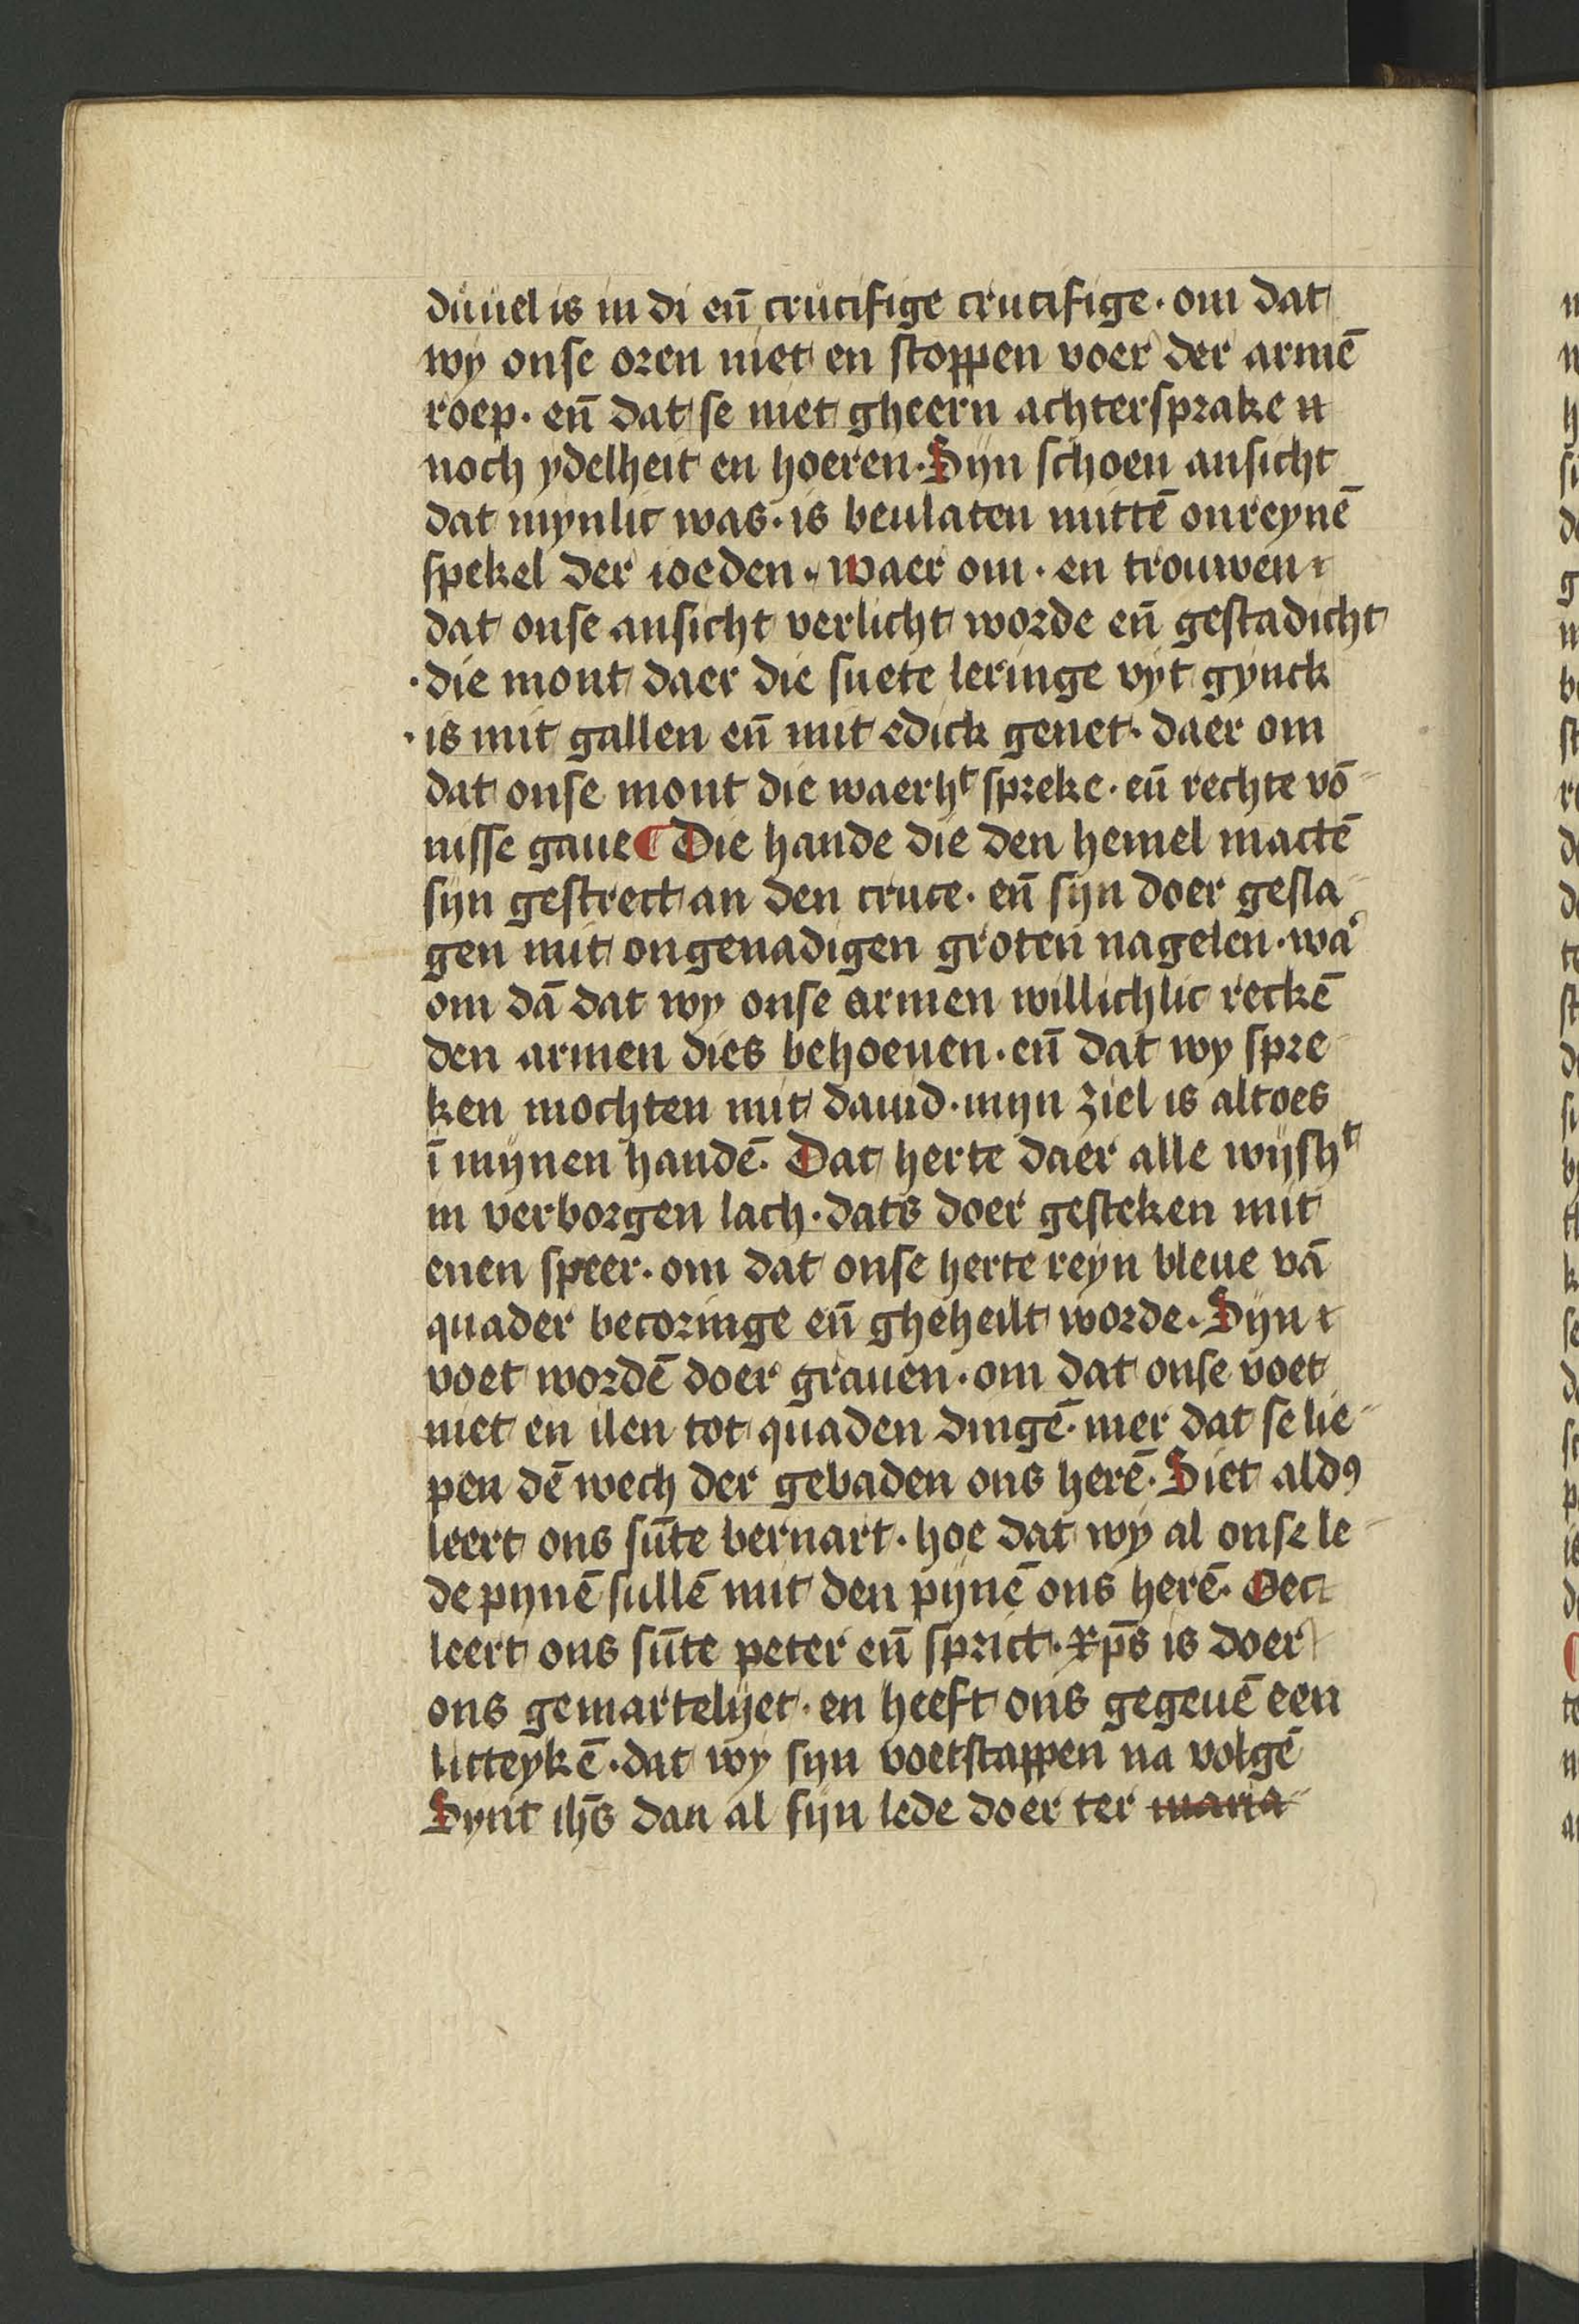 duuel is in di eñ crucifige crucifige · om dat
wy onse oren niet en stoppen voer der armē
roep · eñ dat se niet gheern achtersprake n
noch ydelheit en hoeren · Sijn schoen ansicht
dat mynlic was · is beulaten mittē onreynē
spekel der ioeden · waer om · en trouwen
dat onse ansicht verlicht worde eñ gestadicht
· die mont daer die suete leringe vyt gynck
· is mit gallen eñ mit edick genet · daer om
dat onse mont die waerhᵗ spreke · eñ rechte vō
nisse gaue ¶ Die hande die den hemel mactē
sijn gestrect an den cruce · eñ sijn doer gesla
gen mit ongenadigen groten nagelen · waʳ
om dā dat wy onse armen willichlic reckē
den armen dies behoeuen · eñ dat wy spre
ken mochten mit dauid · mijn ziel is altoes
ī mijnen handē · Dat herte daer alle wijshᵗ
in verborgen lach · dats doer gesteken mit
enen speer · om dat onse herte reyn bleue vā
quader becoringe eñ gheheilt worde · Sijn
voet wordē doer grauen · om dat onse voet
niet en ilen tot quaden dingē · mer dat se lie
pen dē wech der gebaden ons herē · Siet aldꝰ
leert ons sūte bernart · hoe dat wy al onse le
de pijnē sullē mit den pijnē ons herē · Oec
leert ons sūte peter eñ sprict · xp̄s is doer
ons gemartelijet · en heeft ons gegeuē een
litteykē · dat wy sijn voetstappen na volgē
Synt ih̄s dan al sijn lede doer ter maria